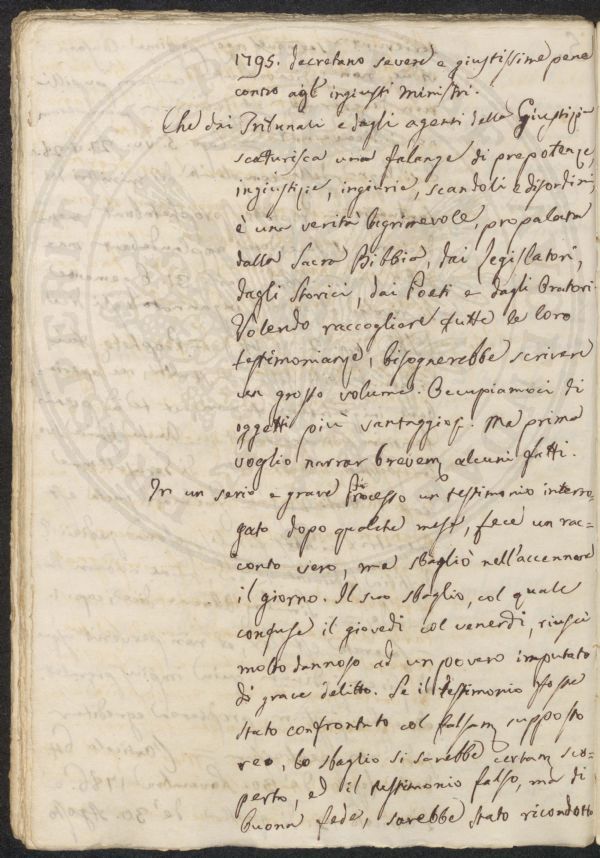 1795. decretano severe e giustissime pene
contro agl' ingiusti Ministri.
Che dai Tribunali e dagli agenti della Giustizia
scaturisca una falange di prepotenze,
ingiustizie, ingiurie, scandoli e disordini,
è una verità lagrimevole, propalata
dalla Sacra Bibbia, dai Legislatori,
dagli Storici, dai Poeti e dagli Oratori.
Volendo raccogliere tutte le loro
testimonianze, bisognerebbe scrivere
un grosso volume. Occupiamoci di
oggetti più vantaggiosi. Ma prima
voglio narrar brevem. alcuni fatti.
In un serio e grave Processo un testimonio interro-
gato dopo qualche mese, fece un rac=
conto vero, ma sbagliò nell'accennare
il giorno. Il suo sbaglio, col quale
confuse il giovedì col venerdì, riuscì
molto dannoso ad un povero imputato
di grave delitto. Se il testimonio fosse
stato confrontato col falsam. supposto
reo, lo sbaglio si sarebbe certam. sco=
perto, ed il testimonio falso, ma di
buona fede, sarebbe stato ricondotto